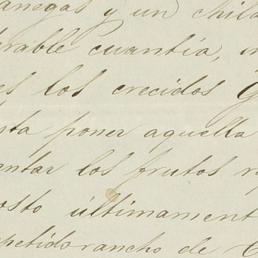 anegas y un chila
rable cuantía, m
es los crecidos g
sta poner aquella
entar los frutos r
osto últimament
petido rancho de C